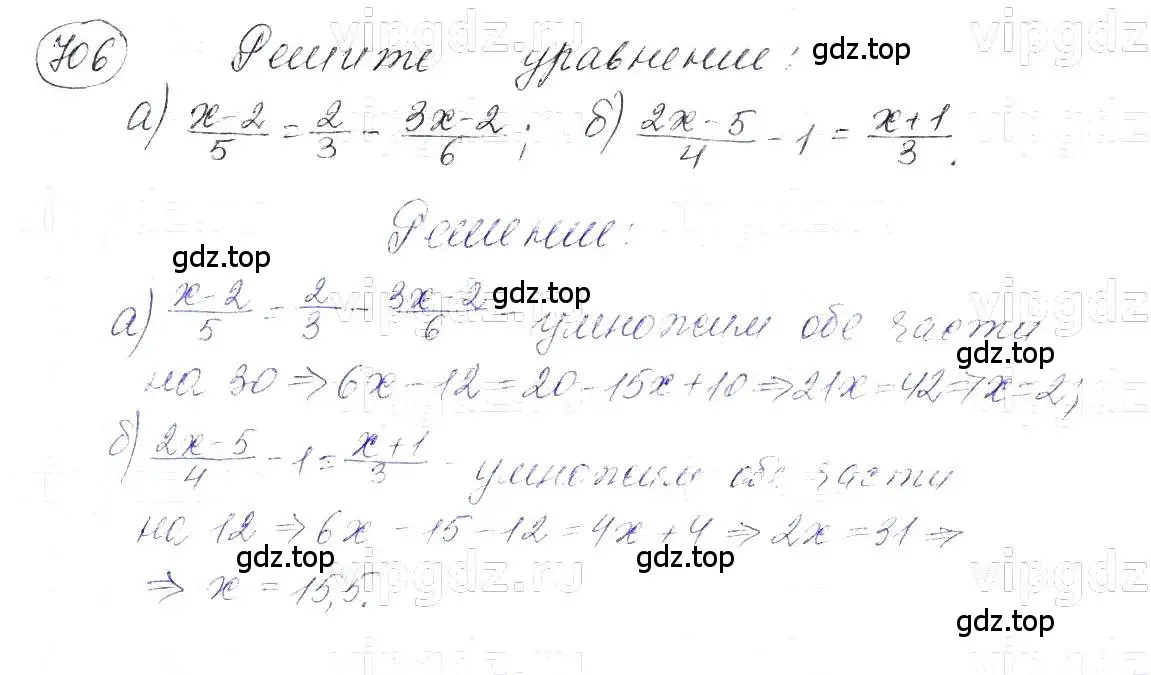 706 Решите уравнение: gdz.top
а) x-2/5 = 2/3 - 3x-2/6; б) 2x-5/4 - 1 = x+1/3.
Решение:
gdz.top
а) x-2/5 = 2/3 - 3x-2/6 - умножим обе части
gdz.top
gdz.top
на 30 ⇒ 6x - 12 = 20 - 15x + 10 ⇒ 21x = 42 ⇒ x = 2;
б) 2x-5/4 - 1 = x+1/3 - умножим обе части
на 12 ⇒ 6x - 15 - 12 = 4x + 4 ⇒ 2x = 31 ⇒
gdz.top gdz.top
⇒ x = 15,5.
gdz.top
vipgdz.ru